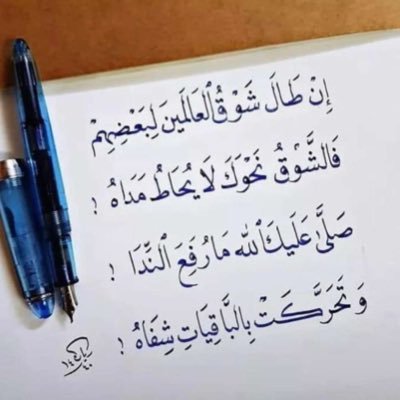 إِنْ طَالَ شَوْقُ العَالَمَينَ لِبَعْضِهِمْ
فَالشَّوْقُ نَحْوَكَ لَا يُحَاطُ مَدَاهُ !
صَلَّىٰ عَلَيْكَ اللّٰه مَا رُفِعَ النِّدَا !
وَتَحَرَّكَتْ بِالبَاقِيَاتِ شِفَاهُ !